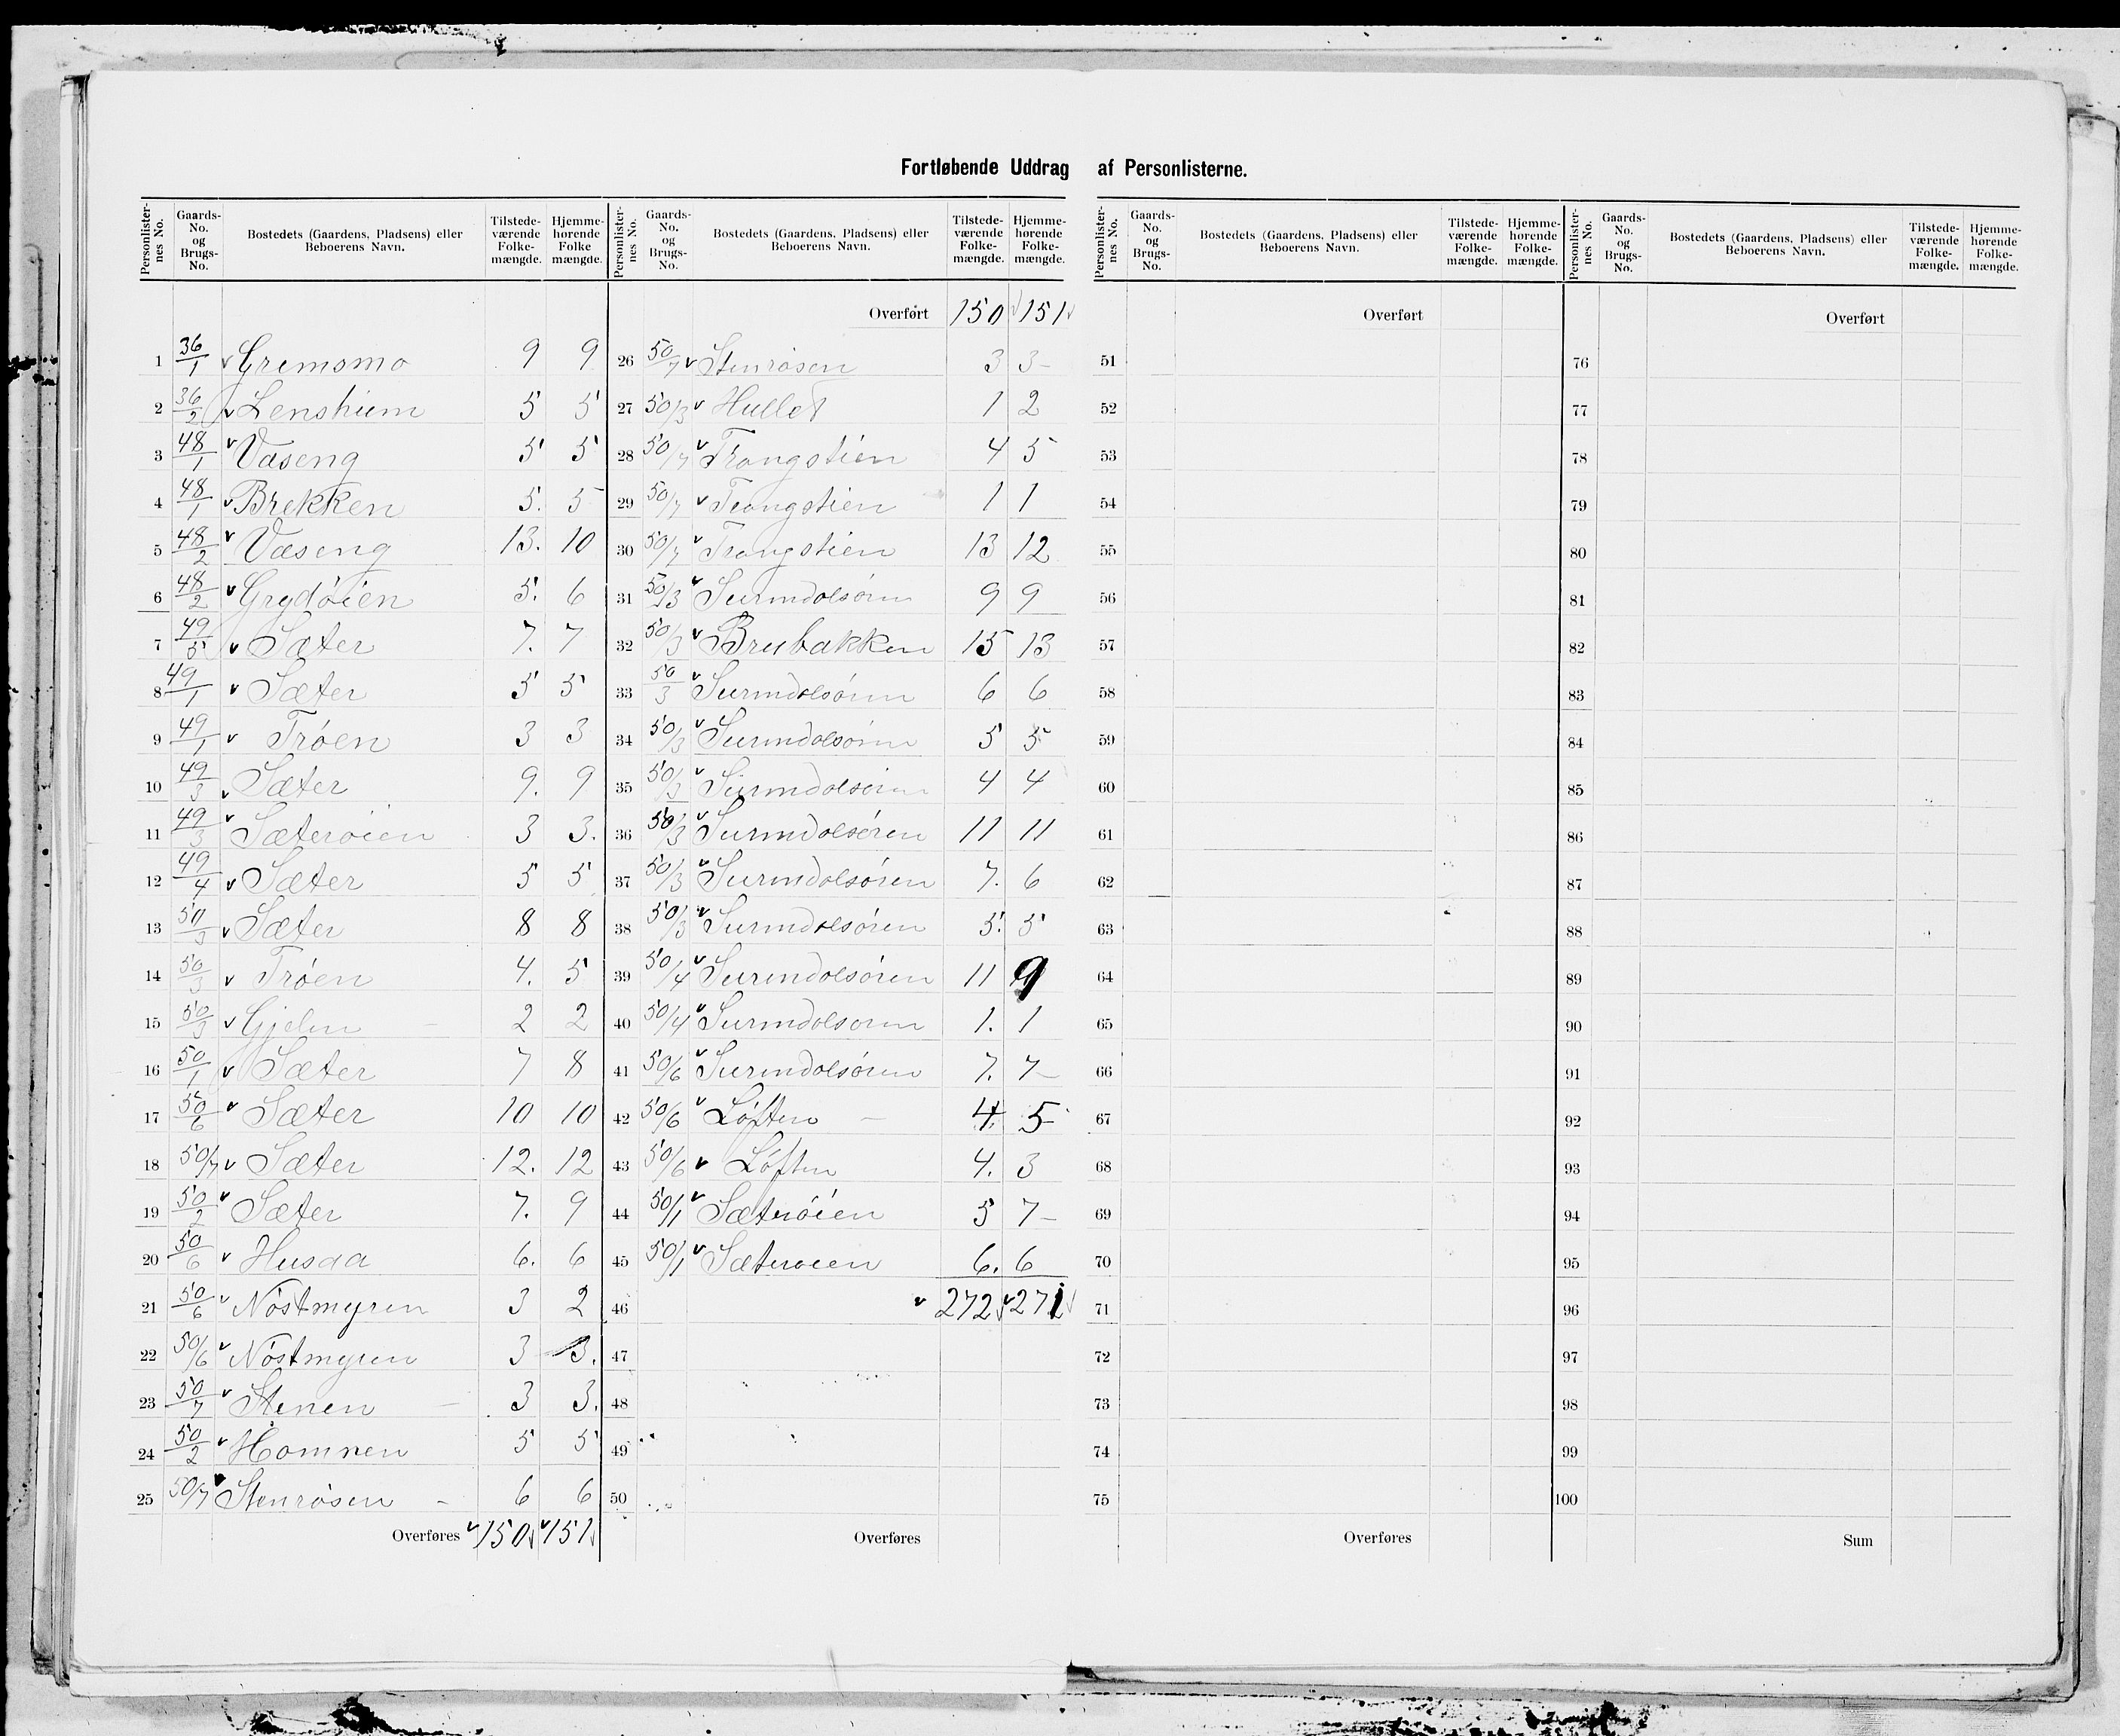 Fortløbende Uddrag af Personlisterne.
Personlister-nes No. | Gaards-No. og Brugs-No. | Bostedets (Gaardens, Pladsens) eller Beboerens Navn. | Tilstede-værende Folke-mængde. | Hjemme-hørende Folke mængde.
1 36/1 Gremsmo 9 9
2 36/2 Lenshiem 5 5
3 48/1 Vaseng 5 5
4 48/1 Brekken 5. 5
5 48/2 Væseng 13. 10
6 48/2 Grydøien 5. 6
7 49/5 Sæter 7. 7
8 49/1 Sæter 5 5
9 49/1 Trøen 3 3
10 49/3 Sæter 9. 9
11 49/3 Sæterøien 3 3.
12 49/4 Sæter 5 5
13 50/3 Sæter 8 8
14 50/3 Trøen 4. 5
15 50/3 Gjelen 2 2
16 50/1 Sæter 7 8
17 50/6 Sæter 10 10
18 50/7 Sæter 12. 12
19 50/2 Sæter 7. 9
20 50/6 Husaa 6. 6
21 50/6 Nøstmyren 3 2
22 50/6 Nøstmyren 3 3.
23 50/7 Stenen 3 3.
24 50/2 Homnen 5 5
25 50/7 Stenrøsen 6 6
Overføres 150 151
Personlister-nes No. | Gaards-No. og Brugs-No. | Bostedets (Gaardens, Pladsens) eller Beboerens Navn. | Tilstede-værende Folke-mængde. | Hjemme-hørende Folke-mængde.
Overført 150 151
26 50/7 Stenrøsen 3 3
27 50/3 Hullet 1 2
28 50/7 Trangstien 4 5
29 50/7 Trangstien 1 1
30 50/7 Trangstien 13 12
31 50/3 Surndolsøren 9 9
32 50/3 Brubakken 15 13
33 50/3 Surndolsøren 6 6
34 50/3 Surndolsøren 5 5
35 50/3 Surndolsøren 4 4
36 50/3 Surndolsøren 11 11
37 50/3 Surndolsøren 7. 6
38 50/3 Surndolsøren 5. 5
39 50/4 Surndolsøren 11 9
40 50/4 Surndolsøren 1. 1
41 50/6 Surndolsøren 7. 7
42 50/6 Løften 4. 5
43 50/6 Løften 4. 3
44 50/1 Sæterøien 5 7
45 50/1 Sæterøien 6. 6
46 272 271
47
48
49
50
Overføres
Personlister-nes No. | Gaards-No. og Brugs-No. | Bostedets (Gaardens, Pladsens) eller Beboerens Navn. | Tilstede-værende Folke-mængde. | Hjemme-hørende Folke-mængde.
Overført
51
52
53
54
55
56
57
58
59
60
61
62
63
64
65
66
67
68
69
70
71
72
73
74
75
Overføres
Personlister-nes No. | Gaards-No. og Brugs-No. | Bostedets (Gaardens, Pladsens) eller Beboerens Navn. | Tilstede-værende Folke-mængde. | Hjemme-hørende Folke-mængde.
Overført
76
77
78
79
80
81
82
83
84
85
86
87
88
89
90
91
92
93
94
95
96
97
98
99
100
Sum